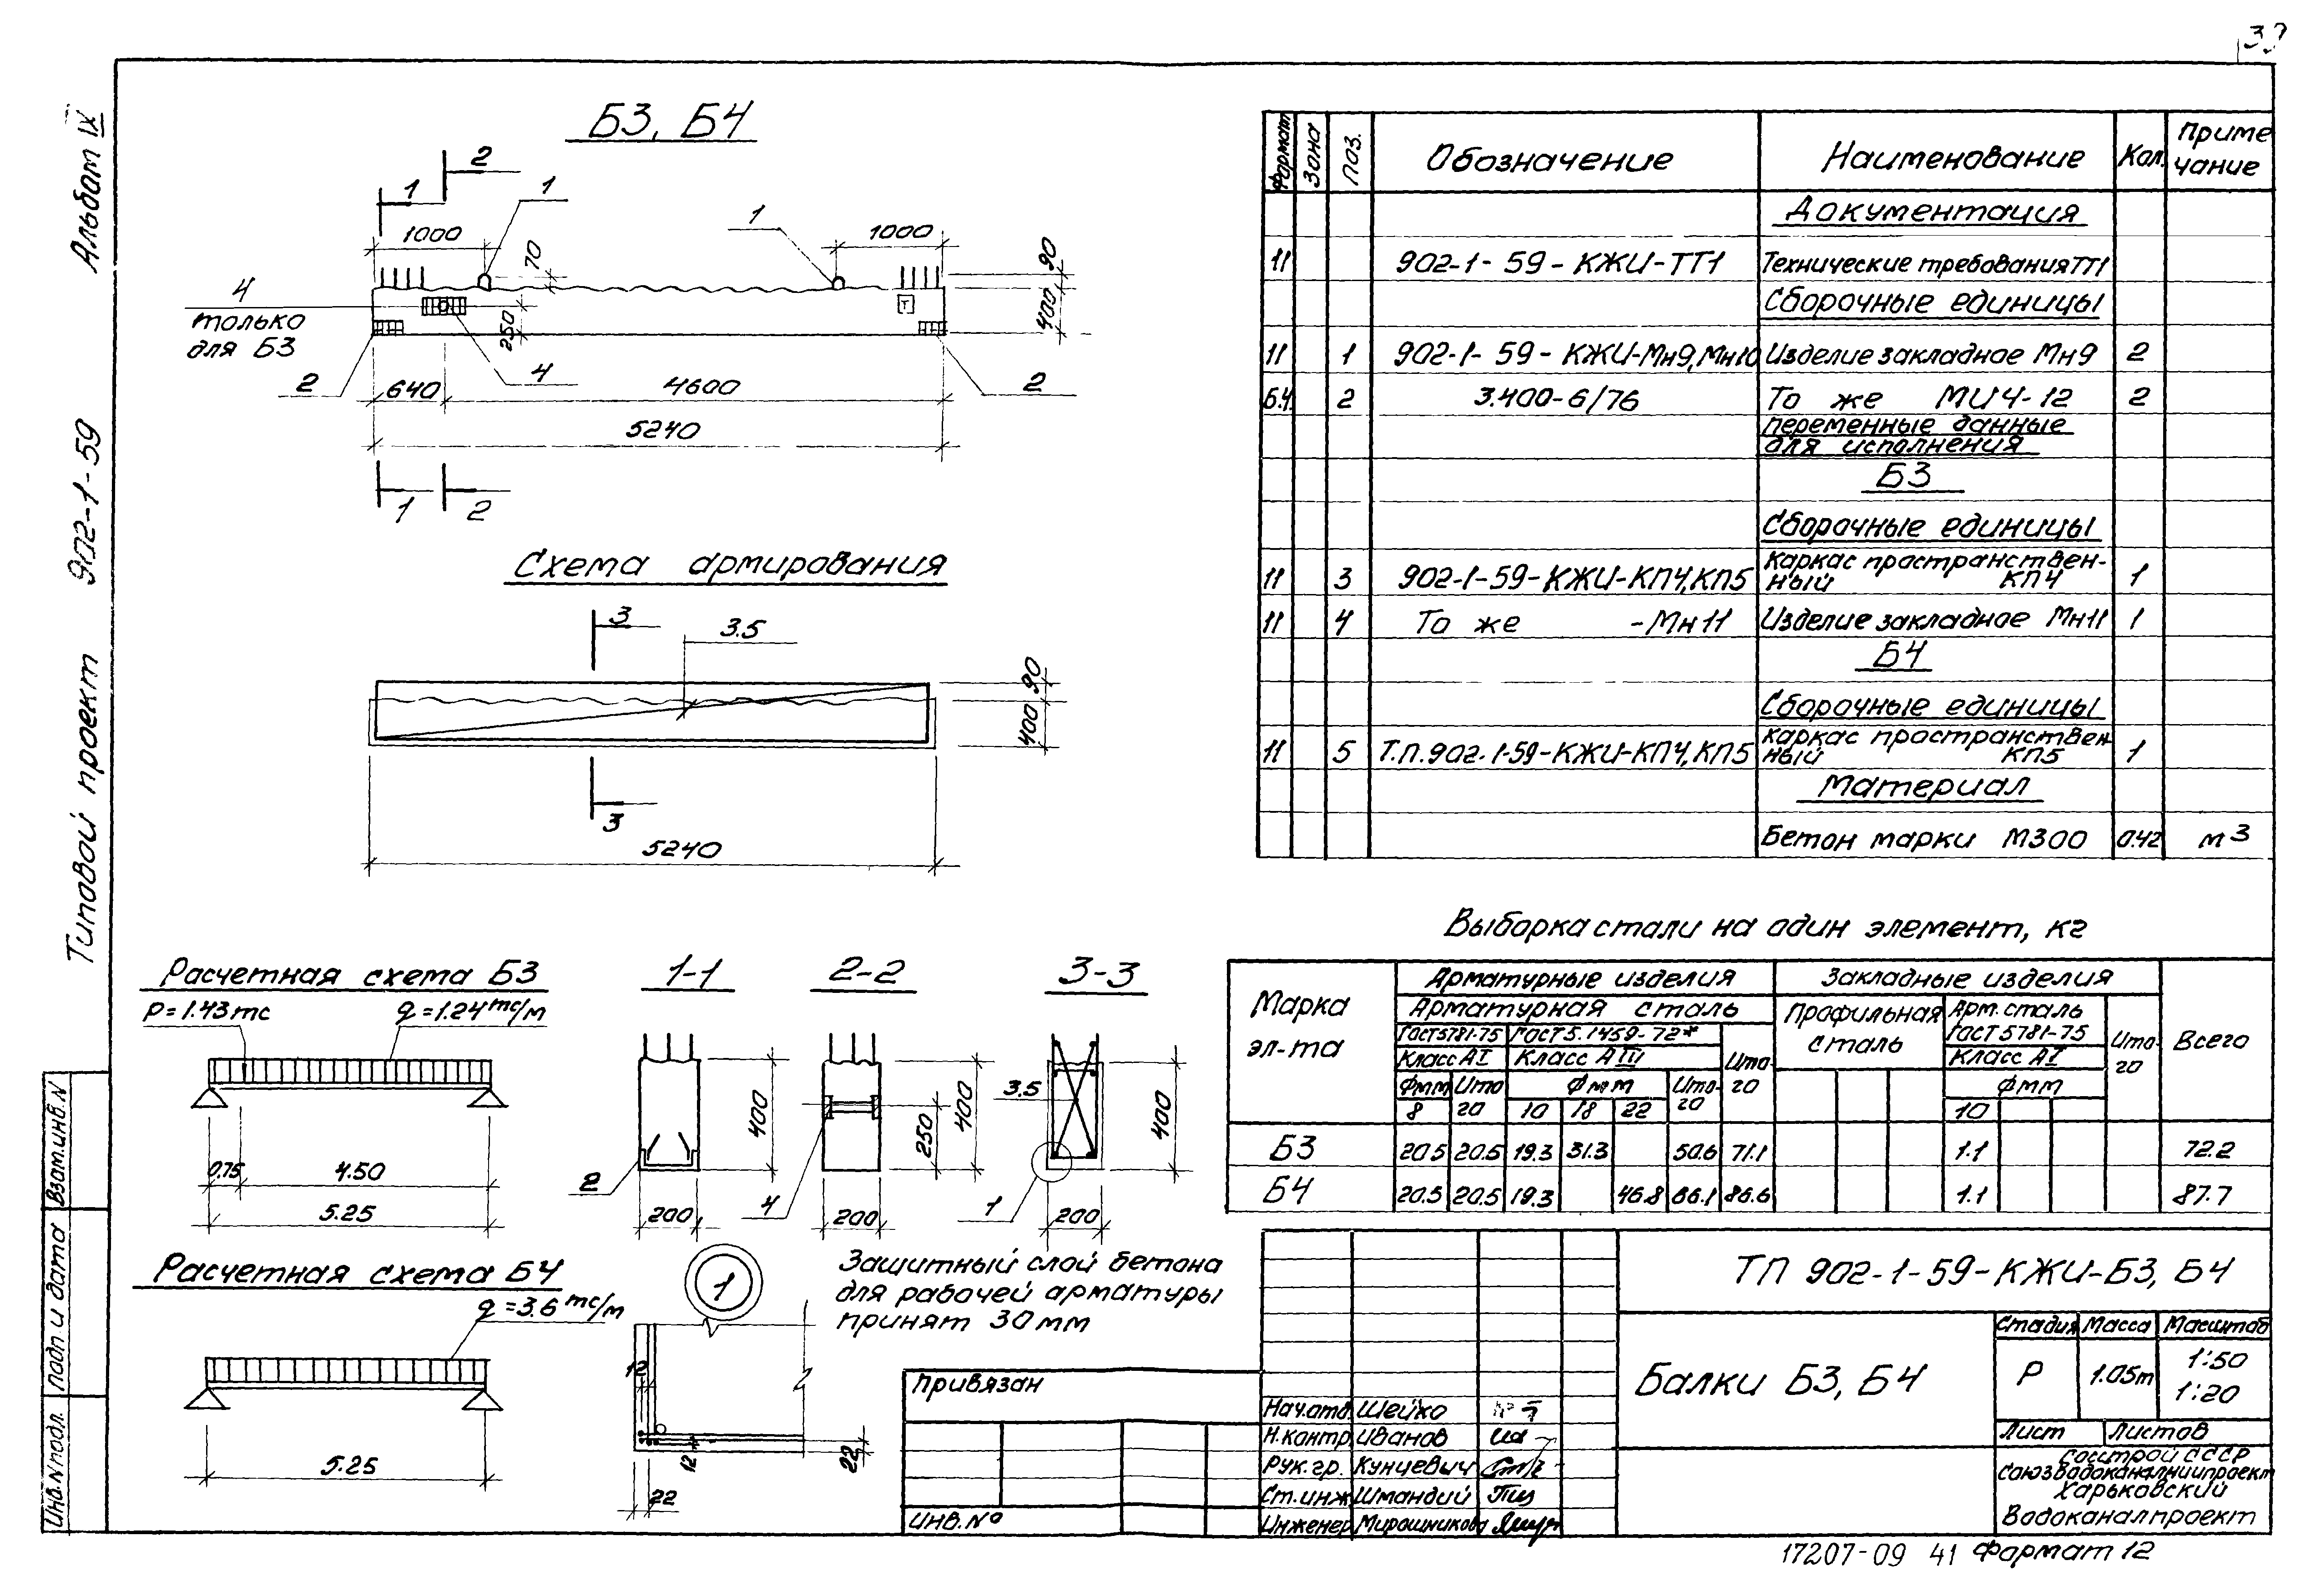 39
Альбом IX
Типовой проект 902-1-59
Взам.инв.N
Подп и дата
Инв.N подл.
Б3, Б4
2
1
1
1
1000
70
1000
90
4
только
для Б3
250
400
2
4
2
640
4600
5240
1
2
Схема армирования
3
3.5
90
400
3
5240
Расчетная схема Б3
P=1.43тс
q=1.24тс/м
0.75
4.50
5.25
Расчетная схема Б4
q=3.6тс/м
5.25
1-1
400
2
200
2-2
400
250
4
200
3-3
3.5
400
1
200
1
12
12
22
22
Защитный слой бетона
для рабочей арматуры
принят 30мм
Формат Зона Поз. Обозначение Наименование Кол. Примечание
Документация
11 902-1-59-КЖИ-ТТ1 Технические требования ТТ1
Сборочные единицы
11 1 902-1-59-КЖИ-Мн9,Мн10 Изделие закладное Мн9 2
Б.4. 2 3.400-6/76 То же МИ4-12 2
переменные данные
для исполнения
Б3
Сборочные единицы
11 3 902-1-59-КЖИ-КП4,КП5 Каркас пространствен-
ный КП4 1
11 4 То же -Мн11 Изделие закладное Мн11 1
Б4
Сборочные единицы
11 5 Т.П.902-1-59-КЖИ-КП4,КП5 Каркас пространствен-
ный КП5 1
Материал
Бетон марки М300 0.42 м3
Выборка стали на один элемент, кг
Марка
эл-та
Арматурные изделия Закладные изделия Всего
Арматурная сталь Профильная
сталь Арм.сталь
ГОСТ5781-75 ГОСТ5.1459-72* Итого ГОСТ5781-75 Итого
Класс АI Класс АIII Класс АI
Фмм Итого Фмм Итого Фмм
8 10 18 22 10
Б3 20.5 20.5 19.3 31.3 50.6 71.1 1.1 72.2
Б4 20.5 20.5 19.3 46.8 66.1 86.6 1.1 87.7
ТП 902-1-59-КЖИ-Б3, Б4
Балки Б3, Б4
Стадия Масса Масштаб
Р 1.05т 1:50
1:20
Лист Листов
Госстрой СССР
Союзводоканалниипроект
Харьковский
Водоканалпроект
Нач.отд. Шейко
Н.контр. Иванов
Рук.гр. Кунцевич
Ст.инж. Шмандий
Инженер Мирошникова
Привязан
ИНВ.№
17207-09 41 Формат 12